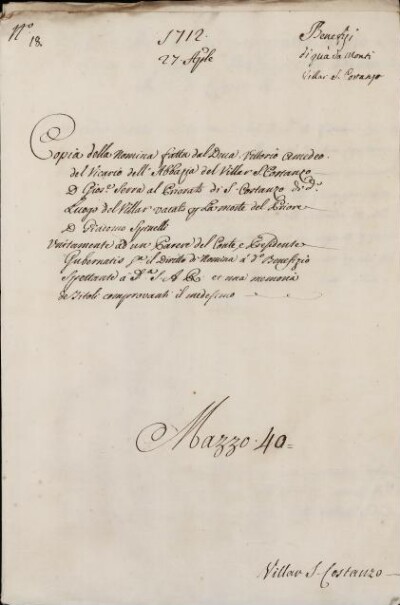 N.º 18.
1712.
27 Aple
Benefizj
di quà da Monti
Villar S. Costanzo
Copia della Nomina fatta dal Duca Vittorio Amedeo
del Vicario dell'Abbazia del Villar S. Costanzo
D. Gios.º Serra al Priorato di S. Costanzo di d.º
Luogo del Villar vacato p la morte del Priore
D. Giacomo Spinelli
Unitamente ad un Parere del Conte, e Presidente
Gubernatis s.ª il Diritto di Nomina à d.º Benefizio
Spettante à S. A. R. et una memoria
de Titoli comprovanti il medesimo
Mazzo 40
Villar S. Costanzo